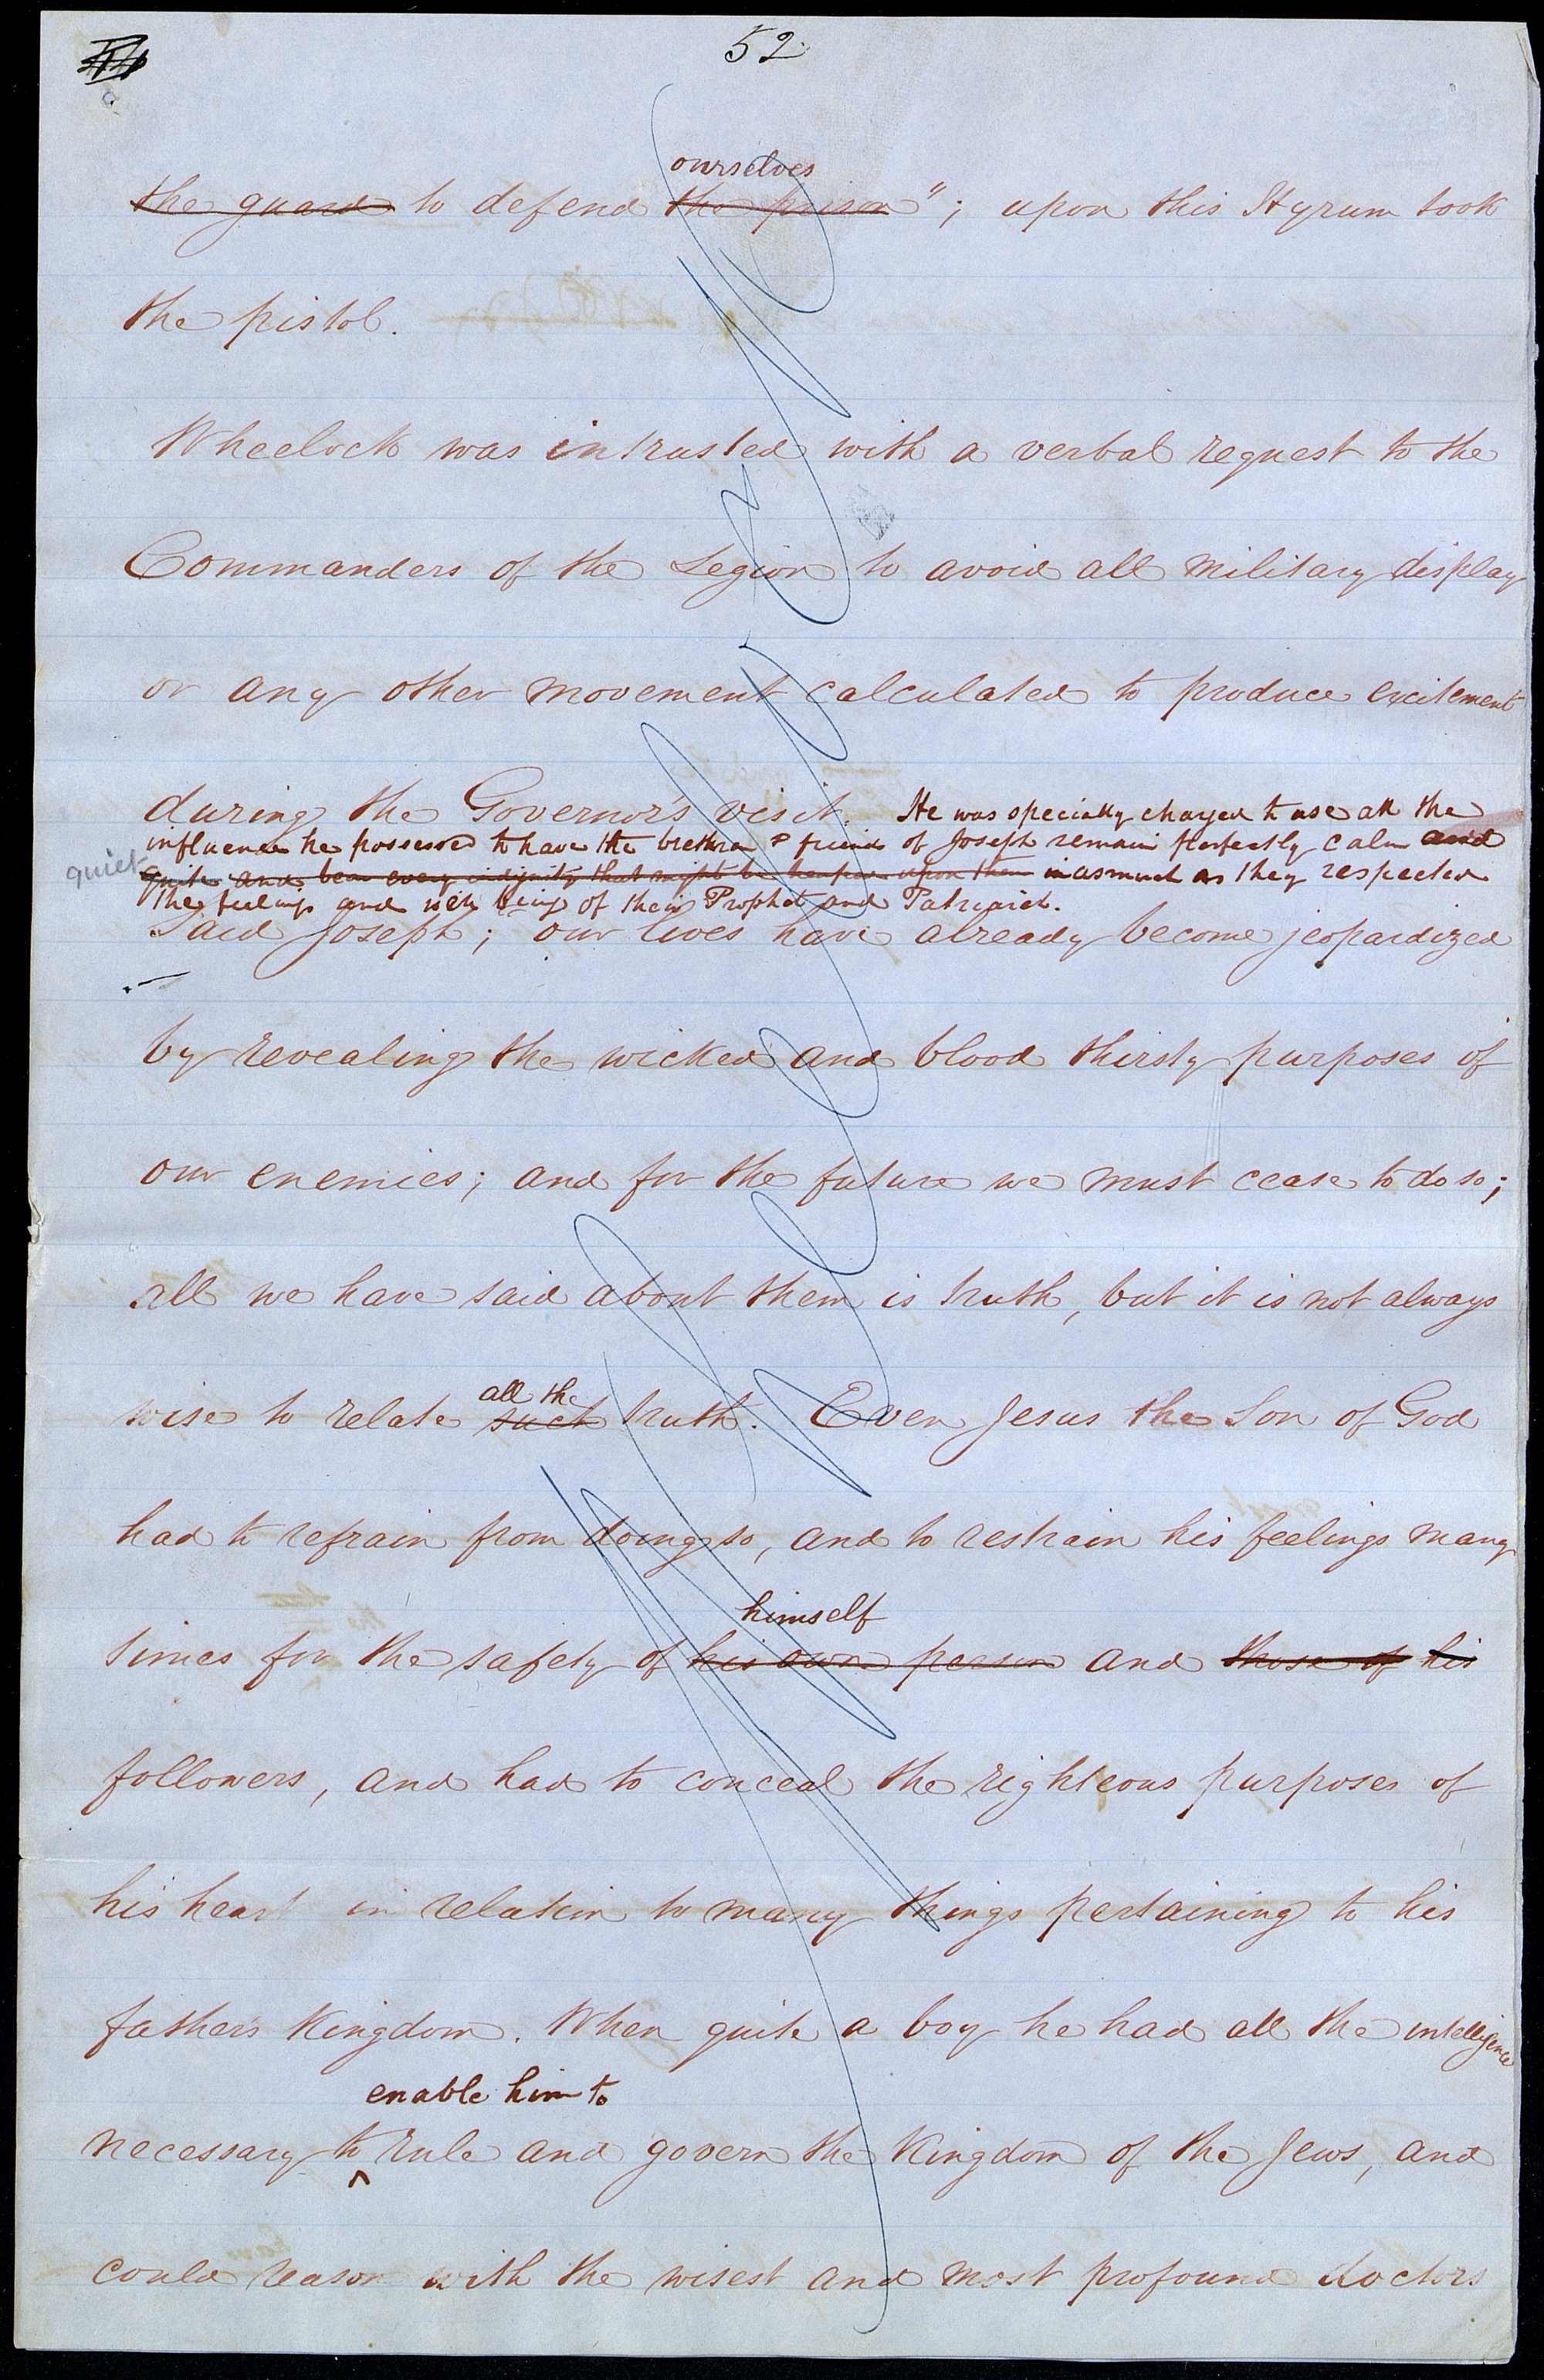 52
ourselves
the guard to defend the prison"; upon this Hyrum took
the pistol.
Wheelock was intrusted with a verbal request to the
Commanders of the Legion to avoid all military display
or any other movement calculated to produce excitement
during the Governor's visit. He was specially charged to use all the
influence he possessed to have the brethren & friends of Joseph remain perfectly calm and
quiet
quite and bear every indignity that might be heaped upon them inasmuch as they respected
the feelings and well being of their Prophet and Patriarch.
Said Joseph; our lives have already become jeopardized
by revealing the wicked and blood thirsty purposes of
our enemies; and for the future we must cease to do so;
all we have said about them is truth, but it is not always
all the
wise to relate such truth. Even Jesus the Son of God
had to refrain from doing so, and to restrain his feelings many
himself
times for the safety of his own person and those of his
followers, and had to conceal the righteous purposes of
his heart in relation to many things pertaining to his
father's Kingdom. When quite a boy he had all the intelligence
enable him to
necessary to rule and govern the Kingdom of the Jews, and
could reason with the wisest and most profound doctors